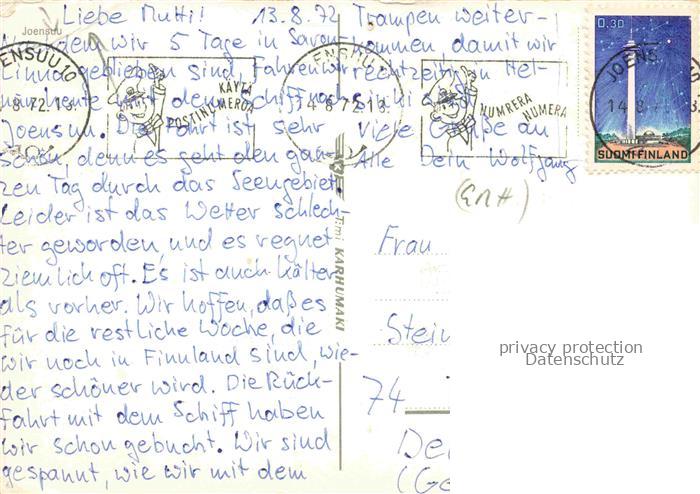 Liebe Mutti! 13.8.72
Joensuu
Nachdem wir 5 Tage in Savon-
linna geblieben sind, fahren wir
heute mit dem Schiff nach
Joensuu. Die Fahrt ist sehr
schön, denn es geht den gan-
zen Tag durch das Seengebiet.
Leider ist das Wetter schlech-
ter geworden, und es regnet
ziemlich oft. Es ist auch kälter
als vorher. Wir hoffen, daß es
für die restliche Woche, die
wir noch in Finnland sind, wie-
der schöner wird. Die Rück-
fahrt mit dem Schiff haben
wir schon gebucht. Wir sind
gespannt, wie wir mit dem
Trampen weiter-
kommen, damit wir
rechtzeitig in Hel-
sinki sind.
Viele Grüße an
Alle Dein Wolfgang
JOENSUU 10
14.8.72.13
KÄYTÄ
POSTINUMEROA
NUMRERA
NUMERA
JOENS
14.8.7
0.30
SUOMI FINLAND
KARHUMÄKI
Frau
Stein
74
De
(Ge
privacy protection
Datenschutz